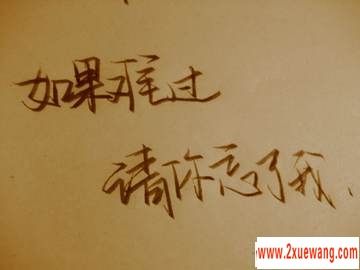 如果难过
请你忘了我.
www.2xuewang.com